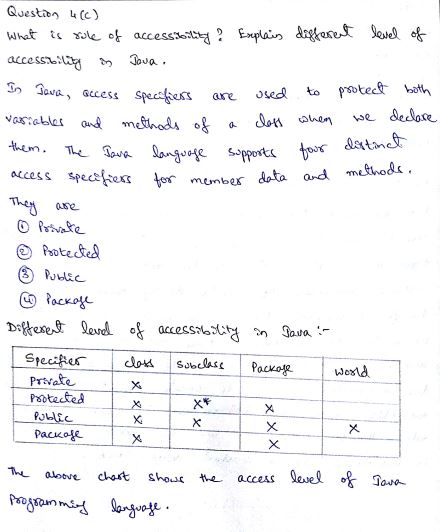 Question 4(c)
What is rule of accessibility? Explain different level of
accessibility in Java.
In Java, access specifiers are used to protect both
variables and methods of a class when we declare
them. The Java language supports four distinct
access specifiers for member data and methods.
They are
① Private
② Protected
③ Public
④ Package
Different level of accessibility in Java :-
Specifier class Subclass Package World
Private X
Protected X X* X
Public X X X X
Package X X
The above chart shows the access level of Java
Programming language.